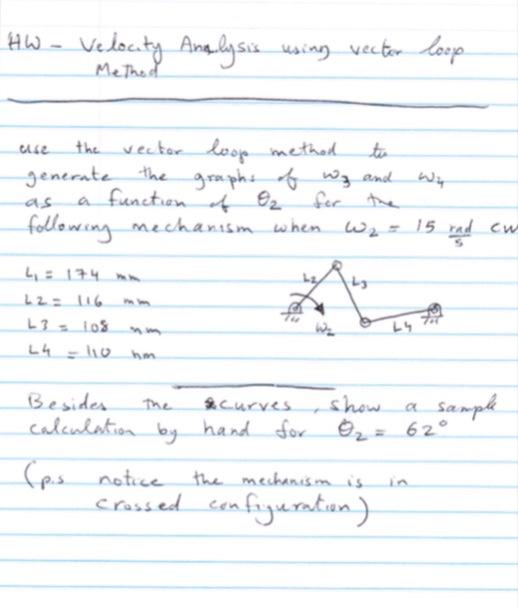 HW - Velocity Analysis using vector loop
Method
use the vector loop method to
generate the graphs of ω3 and ω4
as a function of θ2 for the
following mechanism when ω2 = 15 rad/s cw
L1 = 174 mm
L2 = 116 mm
L3 = 108 mm
L4 = 110 mm
L2
L3
ω2
L4
Besides the curves, show a sample
calculation by hand for θ2 = 62°
(p.s notice the mechanism is in
crossed configuration)